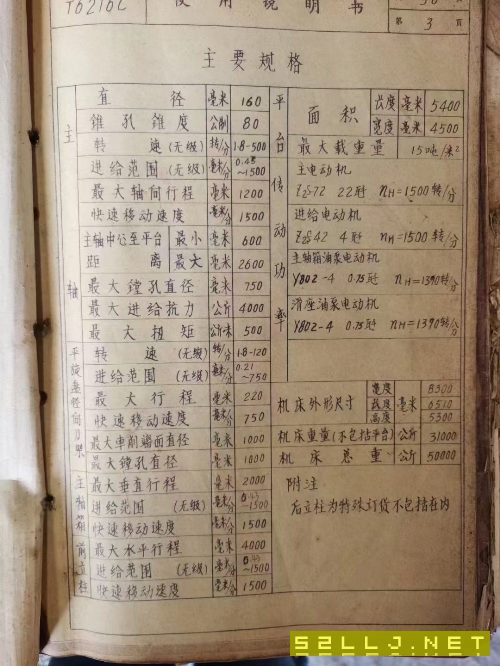 T6216C
使用说明书
第 3 页
主要规格
主轴
直径 毫米 160
锥孔锥度 公制 80
转速 (无级) 转/分 1.8-500
进给范围 (无级) 毫米/分 0.48~1500
最大轴间行程 毫米 1200
快速移动速度 毫米/分 1500
主轴中心至平台 最小 毫米 600
距离 最大 毫米 2600
最大镗孔直径 毫米 750
最大进给抗力 公斤 4000
最大扭矩 公斤·米 500
平旋盘径向刀架
转速 (无级) 转/分 1.8-120
进给范围 (无级) 毫米/分 0.21~750
最大行程 毫米 220
快速移动速度 毫米/分 750
最大车削端面直径 毫米 1000
最大镗孔直径 毫米 1000
主轴箱
最大垂直行程 毫米 2000
进给范围 (无级) 毫米/分 ~1500
快速移动速度 毫米/分 1500
前立柱
最大水平行程 毫米 4000
进给范围 (无级) 毫米/分 ~1500
快速移动速度 毫米/分 1500
平台
面积 长度 毫米 5400
宽度 毫米 4500
最大载重量 15吨/米²
传动功率
主电动机
Z₂-72 22瓩 nH=1500转/分
进给电动机
Z₂-42 4瓩 nH=1500转/分
主轴箱油泵电动机
Y802-4 0.75瓩 nH=1390转/分
滑座油泵电动机
Y802-4 0.75瓩 nH=1390转/分
机床外形尺寸 毫米
宽度 8300
长度 6510
高度 5300
机床重量(不包括平台) 公斤 31000
机床总重 公斤 50000
附注
后立柱为特殊订货不包括在内
52LLJ.NET